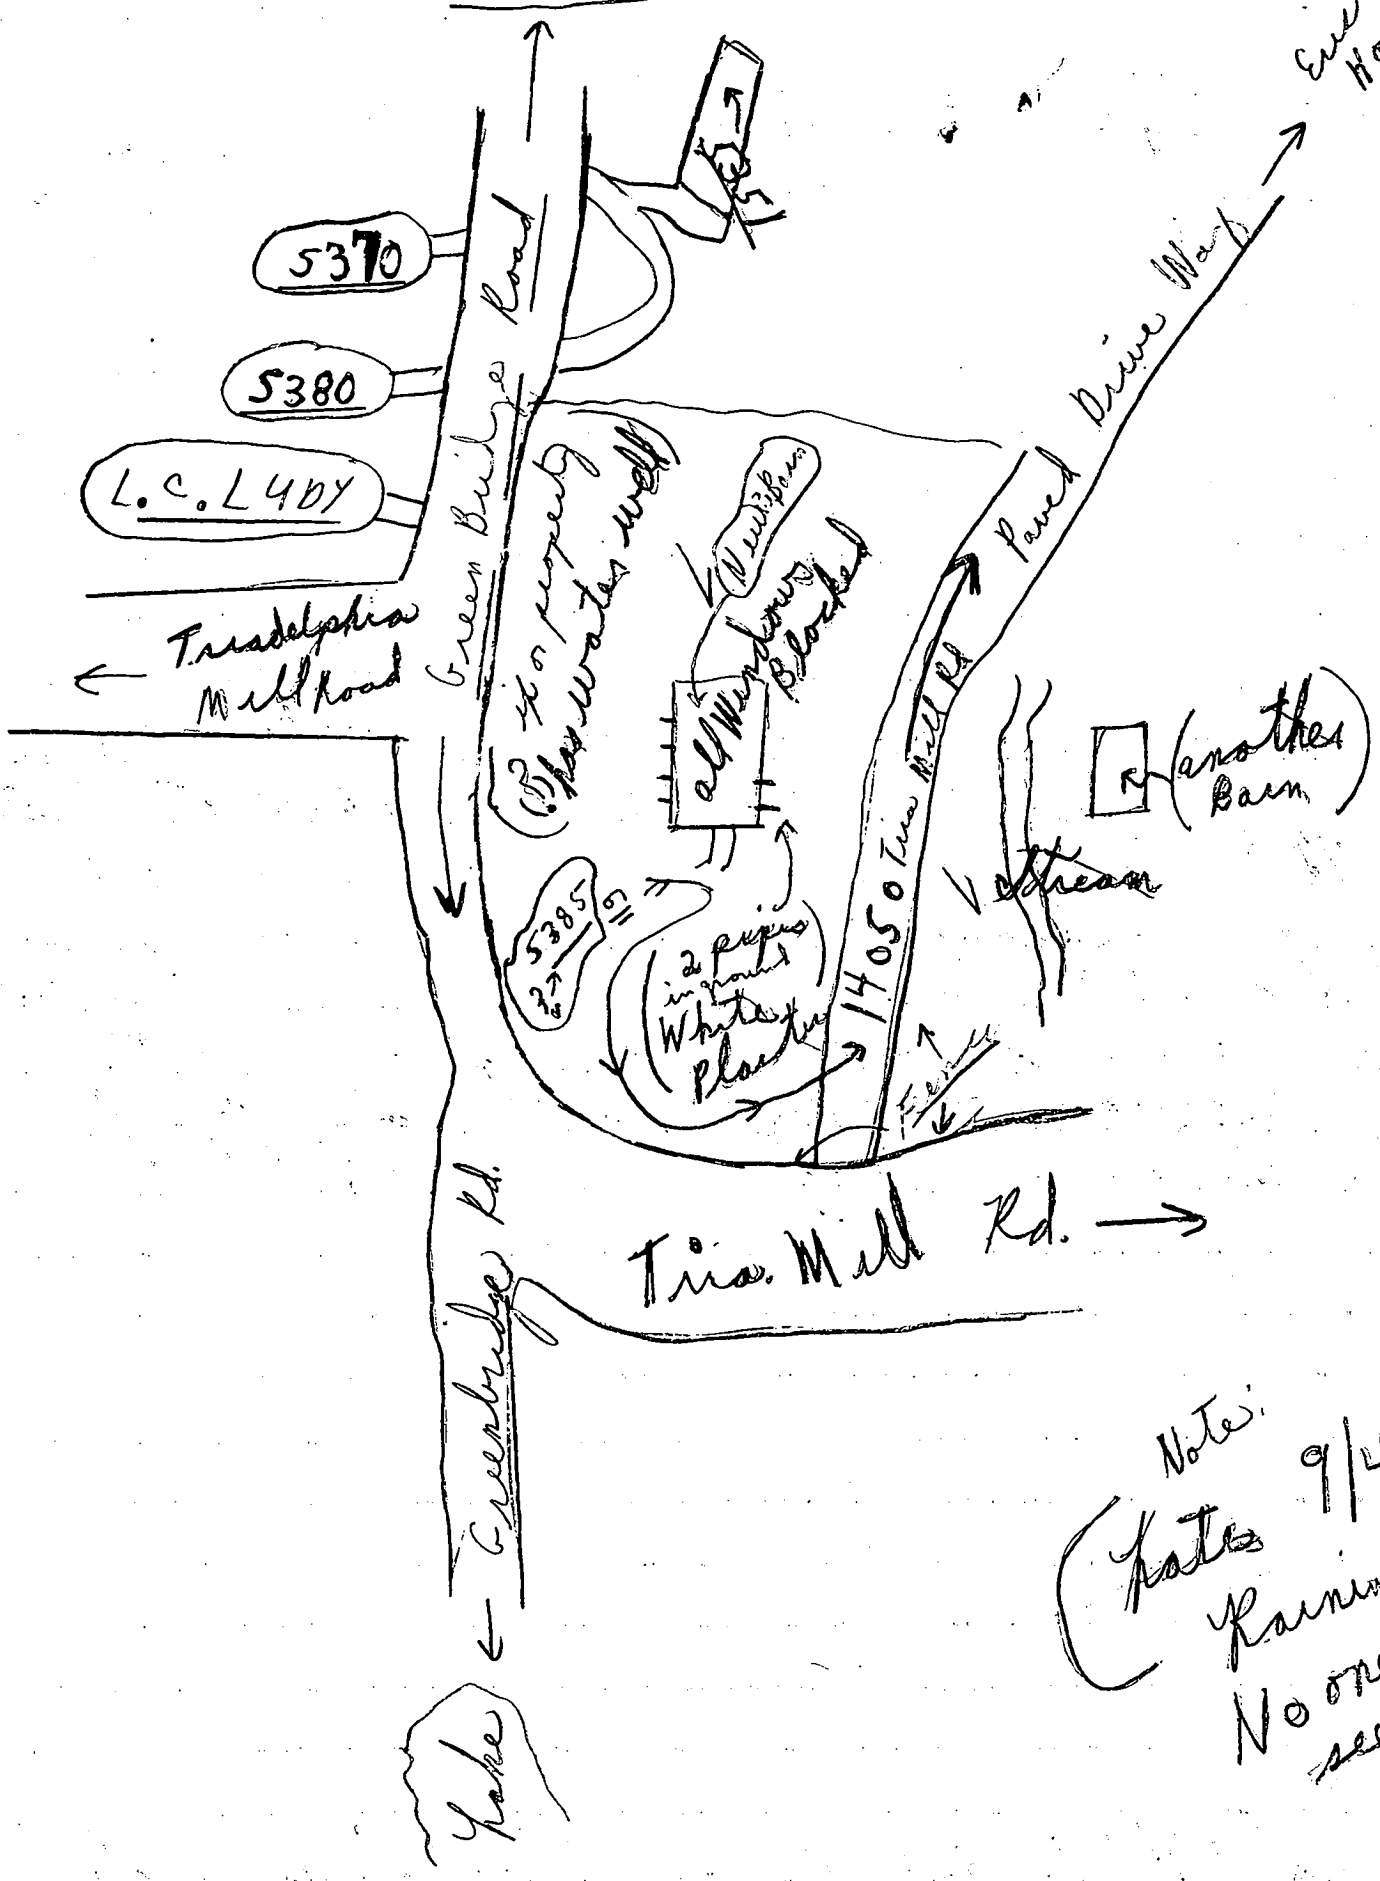 5370
5380
L.C. LUDY
Green Bridge Road
Triadelphia
Mill Road
(?) if or property
has water well
New Barn
all Windows
Blocked
Paved Drive Way
14050 Tria Mill Rd
(another
Barn)
Stream
5385
2 pipes
in ground
White
Plaster
Fence
Tria. Mill Rd.
Greenbridge Rd.
Lake
Note:
9/2
No one